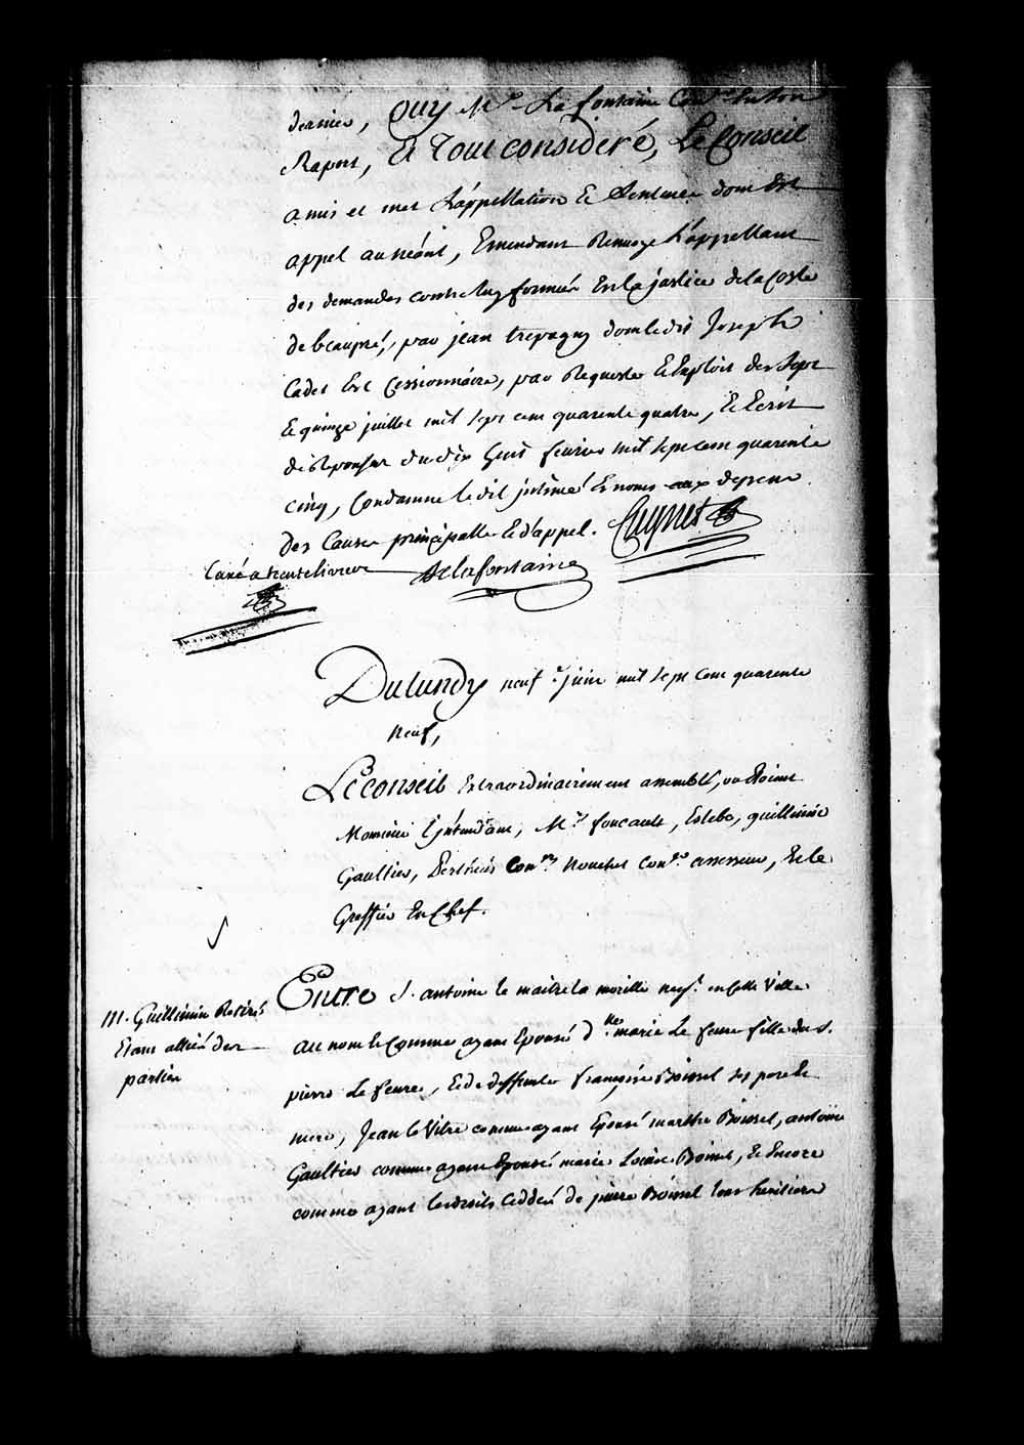 dernier, Ouy Mr. de la fontaine Conr. En son
Raport, Et Tout considéré, Le Conseil
a mis et met L'appellation Et Sentence dont Est
appel au néant, Emendant Renvoye L'appellant
des demandes contre luy formée En la justice de la Coste
de beaupré, par jean trepagny dont ledit Joseph
Cadet Est Cessionnaire, par Requeste Et Exploit des Sept
Et quinze juillet mil sept cent quarente quatre, Et Ecrit
de Réponses du dix huit fevrier mil sept cent quarente
cinq, Condamne ledit jntimé Es noms aux depens
des Causes principalle Et d'appel. Cugnet
Taxé a trente livres Delafontaine
Du lundy neufe. juin mil sept cent quarente
Neuf,
Le conseil Extraordinairement assemblé, ou Etoient
Monsieur L'jntendant, Mrs. foucault, Estebe, guillimin
Gaultier, Conrs. Nouchet Conr. assesseur, Et le
Greffier En Chef.
Entre S. antoine le maitre la morille negt. en cette Ville
M. Guillimin Retiré
au nom Et Comme ayant Epousé dlle. marie Le fevre fille du S.
Etant allié des
pierre Le fevre, Et de deffunte françoise Boissel ses pere Et
parties
mere, Jean le Vitre comme ayant Epousé marthe Boissel, antoine
Gaultier comme ayant Epousé marie Louise Boissel, Et Encore
comme ayant les droits Ceddés de pierre Boissel tous heritiers